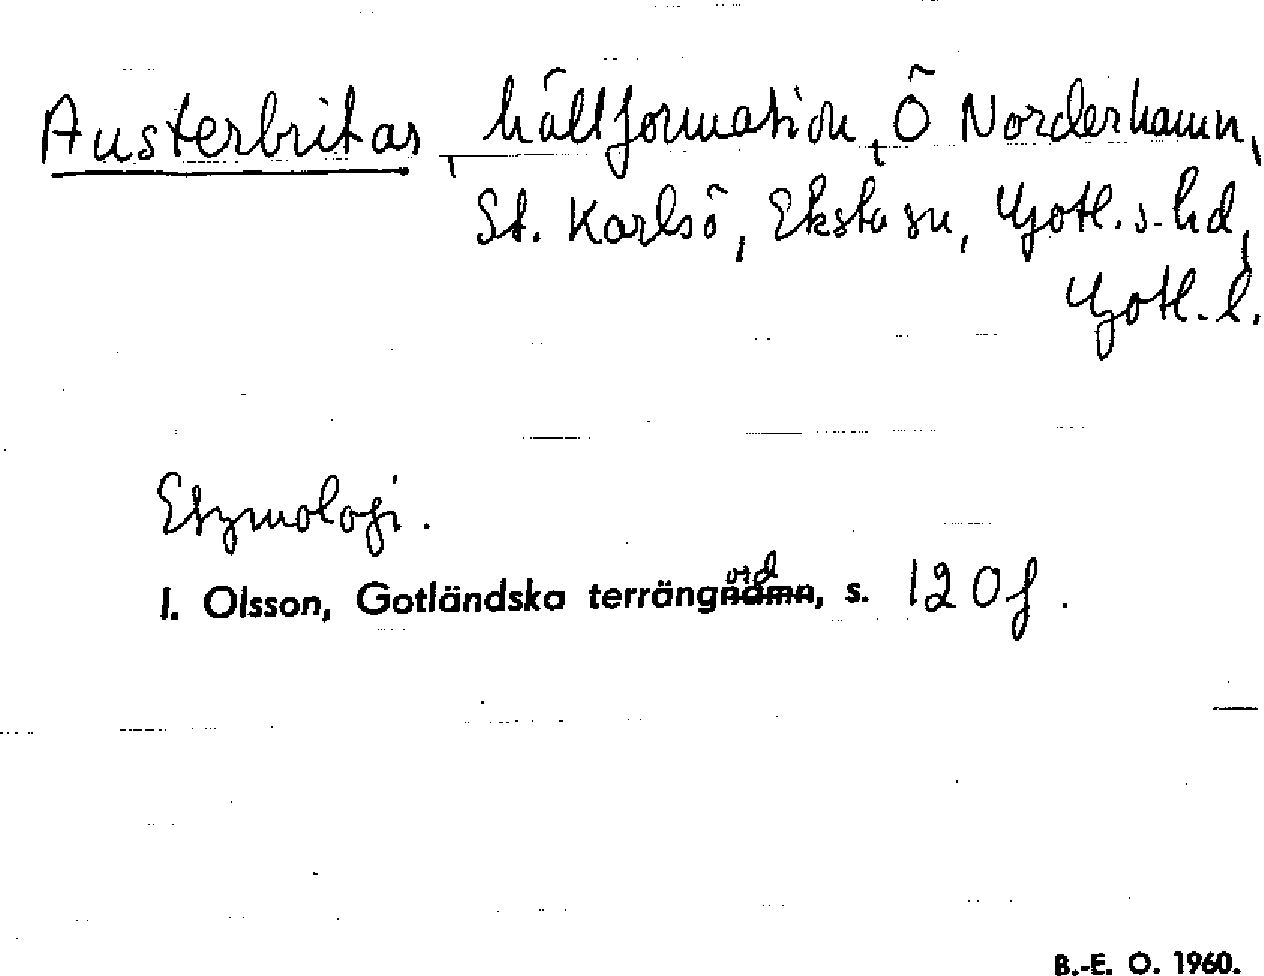 Austerbritar, hällformation, Ö Norderhamn,
St. Karlsö, Eksta sn, Gotl. s. hd,
Gotl. l.
Etymologi.
I. Olsson, Gotländska terrängord, s. 120 f.
B.-E. O. 1960.